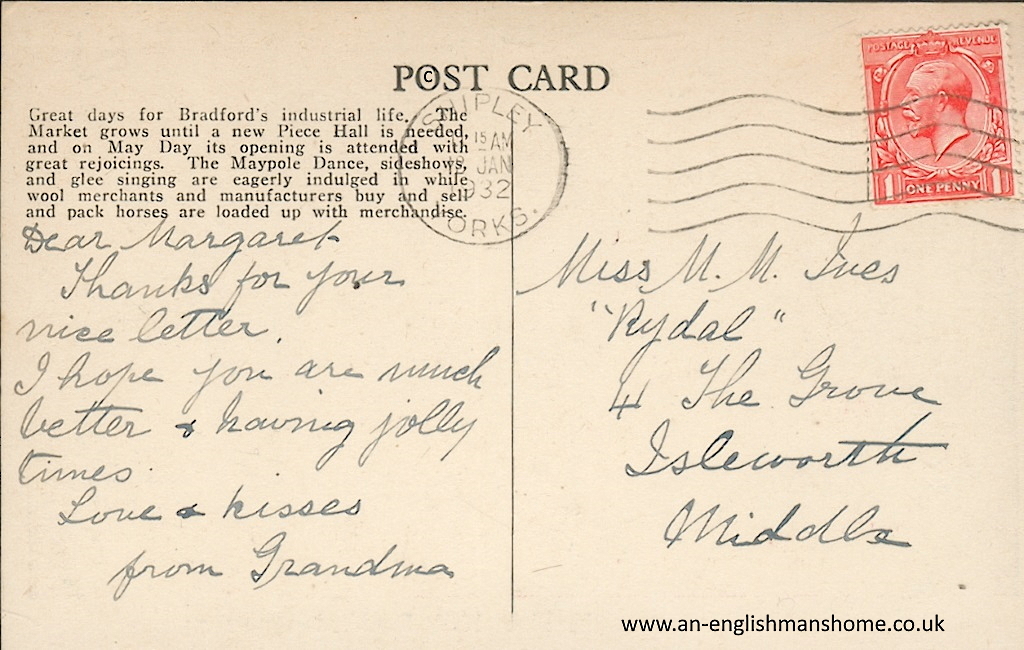 POST CARD
©
Great days for Bradford's industrial life. The
Market grows until a new Piece Hall is needed,
and on May Day its opening is attended with
great rejoicings. The Maypole Dance, sideshows,
and glee singing are eagerly indulged in while
wool merchants and manufacturers buy and sell
and pack horses are loaded up with merchandise.
SHIPLEY
15 AM
JAN
1932
YORKS.
POSTAGE REVENUE
1 ONE PENNY 1
Dear Margaret
Thanks for your
nice letter.
I hope you are much
better & having jolly
times.
Love & kisses
from Grandma
Miss M. M. Ives
"Rydal"
4 The Grove
Isleworth
Middlx
www.an-englishmanshome.co.uk